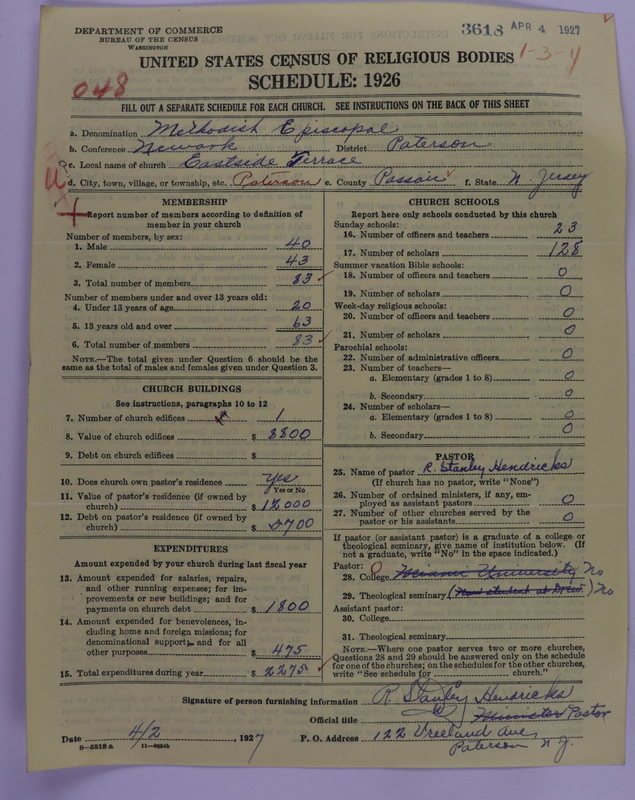 DEPARTMENT OF COMMERCE
BUREAU OF THE CENSUS
WASHINGTON
3618 APR 4 1927
1-3-4
UNITED STATES CENSUS OF RELIGIOUS BODIES
SCHEDULE: 1926
048
FILL OUT A SEPARATE SCHEDULE FOR EACH CHURCH. SEE INSTRUCTIONS ON THE BACK OF THIS SHEET
a. Denomination Methodist Episcopal
b. Conference Newark District Paterson
c. Local name of church Eastside Terrace
d. City, town, village, or township, etc. Paterson e. County Passaic f. State N. Jersey
MEMBERSHIP
Report number of members according to definition of
member in your church
Number of members, by sex:
1. Male 40
2. Female 43
3. Total number of members 83
Number of members under and over 13 years old:
4. Under 13 years of age 20
5. 13 years old and over 63
6. Total number of members 83
NOTE.—The total given under Question 6 should be
same as the total of males and females given under Question 3.
CHURCH BUILDINGS
See instructions, paragraphs 10 to 12
7. Number of church edifices 1
8. Value of church edifices $ 8800
9. Debt on church edifices $
10. Does church own pastor's residence yes
Yes or No
11. Value of pastor's residence (if owned by
church) $ 12000
12. Debt on pastor's residence (if owned by
church) $ 5700
EXPENDITURES
Amount expended by your church during last fiscal year
13. Amount expended for salaries, repairs,
and other running expenses; for im-
provements or new buildings; and for
payments on church debt $ 1800
14. Amount expended for benevolences, in-
cluding home and foreign missions; for
denominational support; and for all
other purposes $ 475
15. Total expenditures during year $ 2275
CHURCH SCHOOLS
Report here only schools conducted by this church
Sunday schools:
16. Number of officers and teachers 23
17. Number of scholars 128
Summer vacation Bible schools:
18. Number of officers and teachers 0
19. Number of scholars 0
Week-day religious schools:
20. Number of officers and teachers 0
21. Number of scholars 0
Parochial schools:
22. Number of administrative officers 0
23. Number of teachers—
a. Elementary (grades 1 to 8) 0
b. Secondary 0
24. Number of scholars—
a. Elementary (grades 1 to 8) 0
b. Secondary 0
PASTOR
25. Name of pastor R. Stanley Hendricks
(If church has no pastor, write "None")
26. Number of ordained ministers, if any, em-
ployed as assistant pastors 0
27. Number of other churches served by the
pastor or his assistants 0
If pastor (or assistant pastor) is a graduate of a college or
theological seminary, give name of institution below. (If
not a graduate, write "No" in the space indicated.)
Pastor: 0
28. College Miami University No
29. Theological seminary (Now student at Drew) No
Assistant pastor:
30. College
31. Theological seminary
NOTE.—Where one pastor serves two or more churches,
Questions 28 and 29 should be answered only on the schedule
for one of the churches; on the schedules for the other churches,
write "See schedule for church."
Signature of person furnishing information R Stanley Hendricks
Official title Minister Pastor
Date 4/2, 1927 P. O. Address 122 Vreeland Ave,
Paterson N J.
8-5518 a